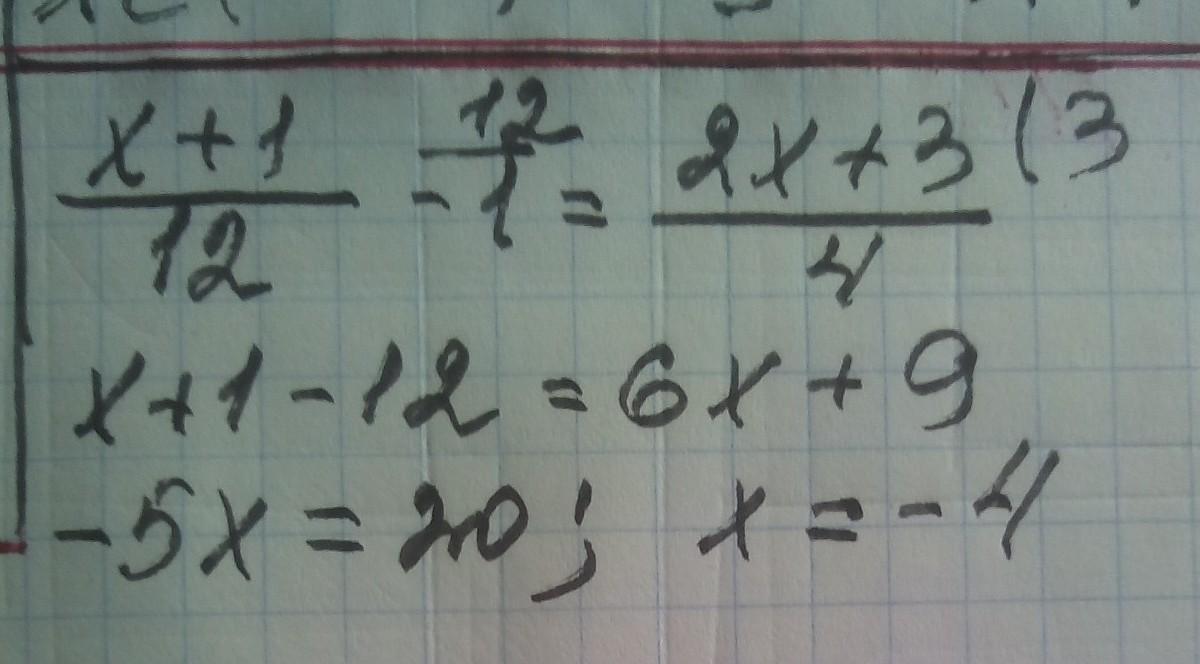 x+1/12 - 1 (12 = 2x+3/4 (3
x+1-12=6x+9
-5x=20; x=-4